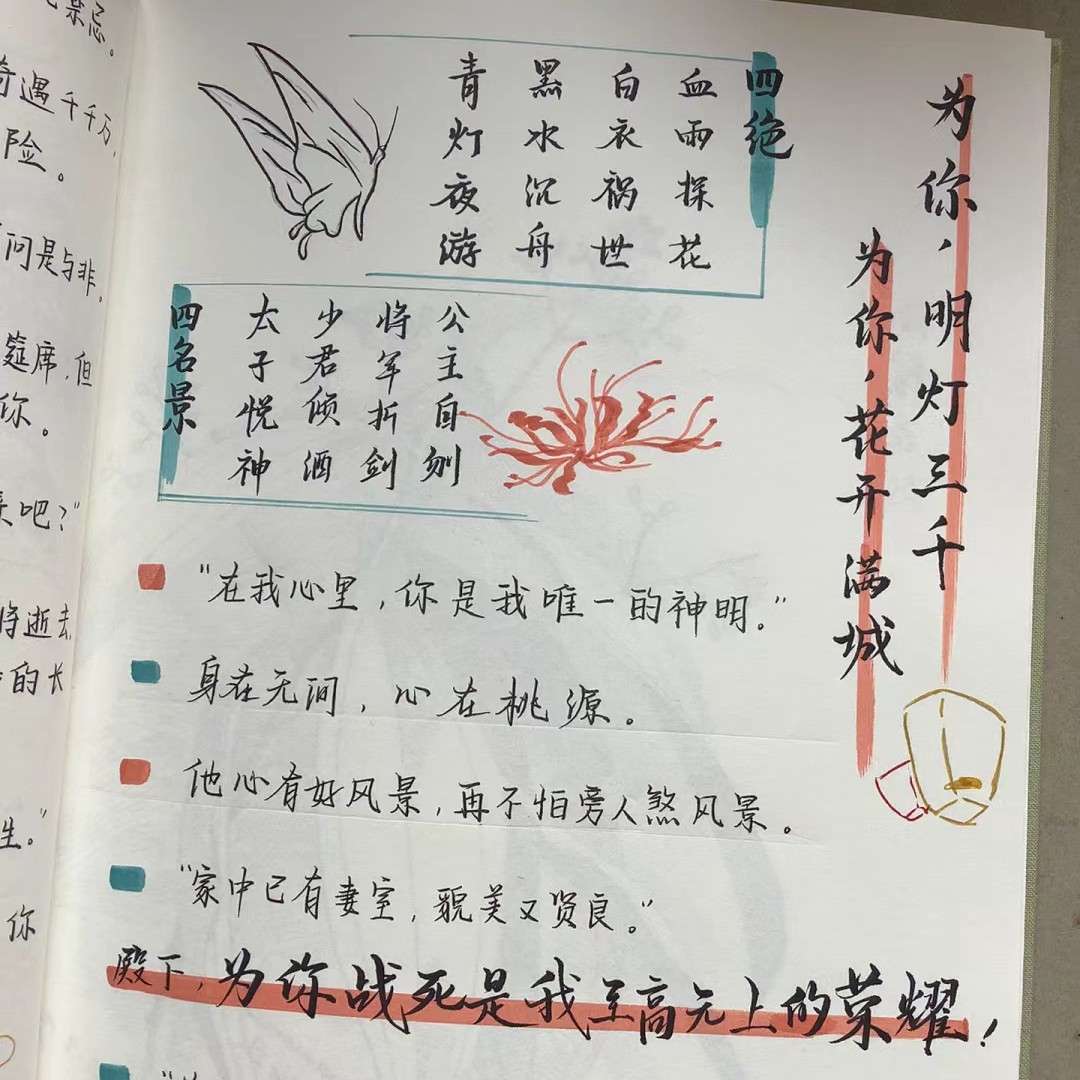 为你，明灯三千
为你，花开满城
四绝
血雨探花
白衣祸世
黑水沉舟
青灯夜游
四名景
太子悦神
少君倾酒
将军折剑
公主自刎
"在我心里，你是我唯一的神明。"
身在无间，心在桃源。
他心有好风景，再不怕旁人煞风景。
"家中已有妻室，貌美又贤良。"
殿下，为你战死是我至高无上的荣耀！
禁忌。
遇千千万，
险。
问是与非。
筵席，但
你。
吧？"
将逝去
的长
生。"
你